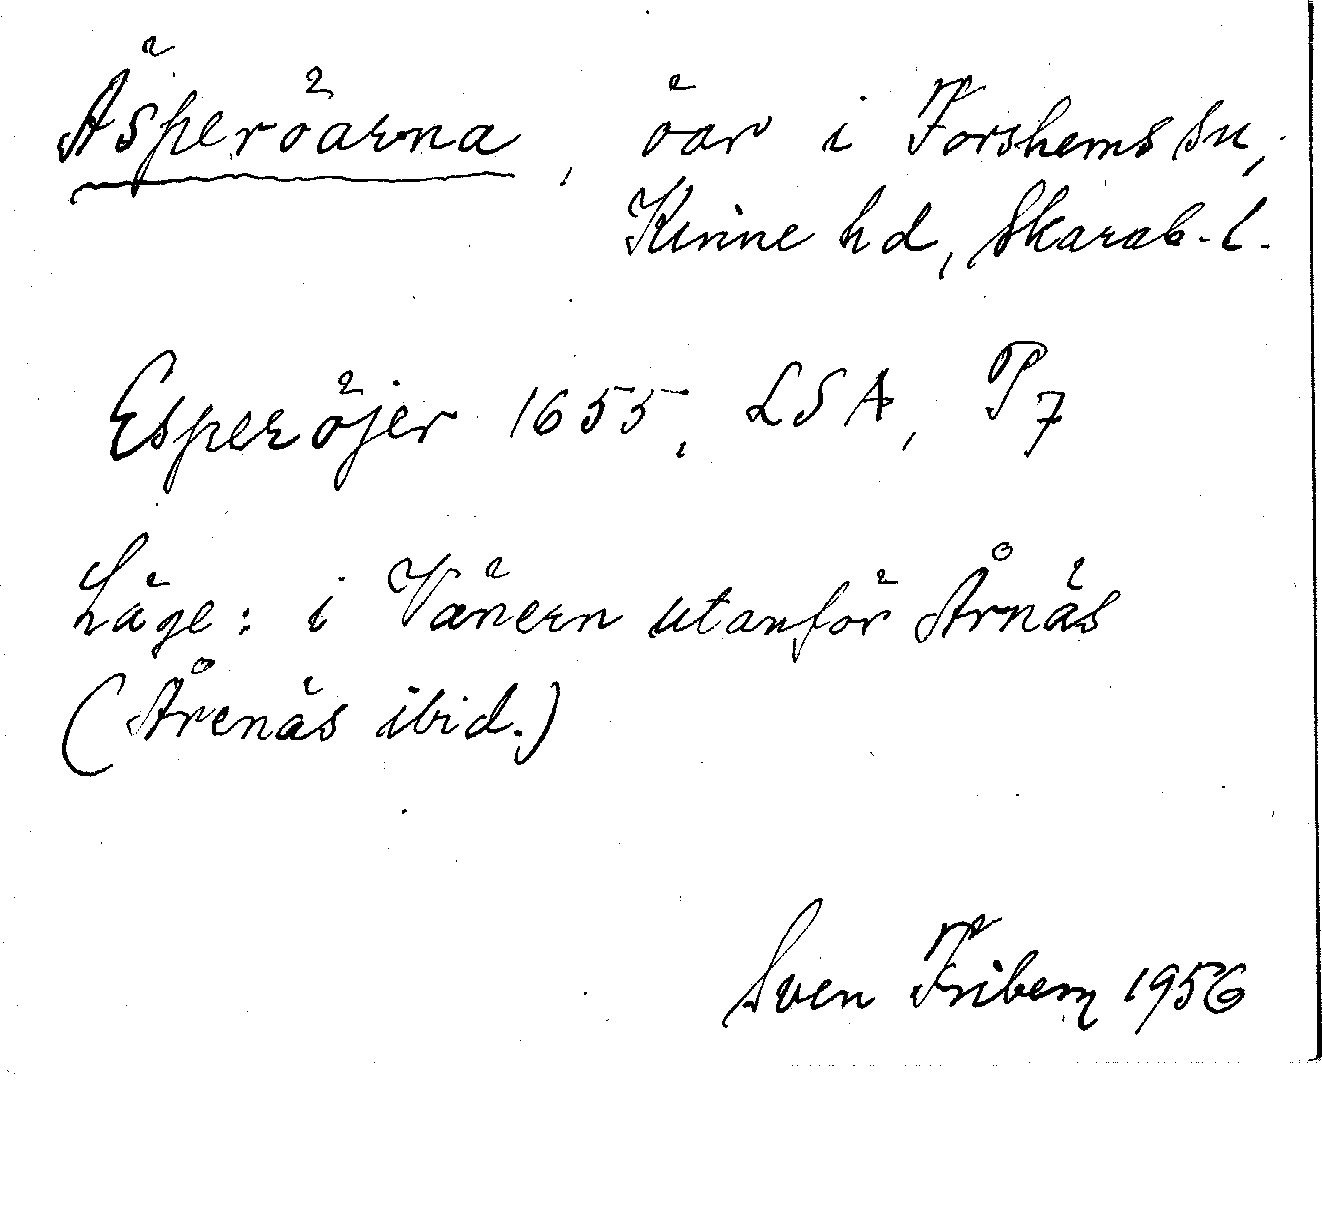 Äsperöarna, öar i Forshems sn,
Kinne hd, Skarab. l.
Esperöjer 1655, LSA, P7
Läge: i Vänern utanför Årnäs
(Årenäs ibid.)
Sven Friberg 1956